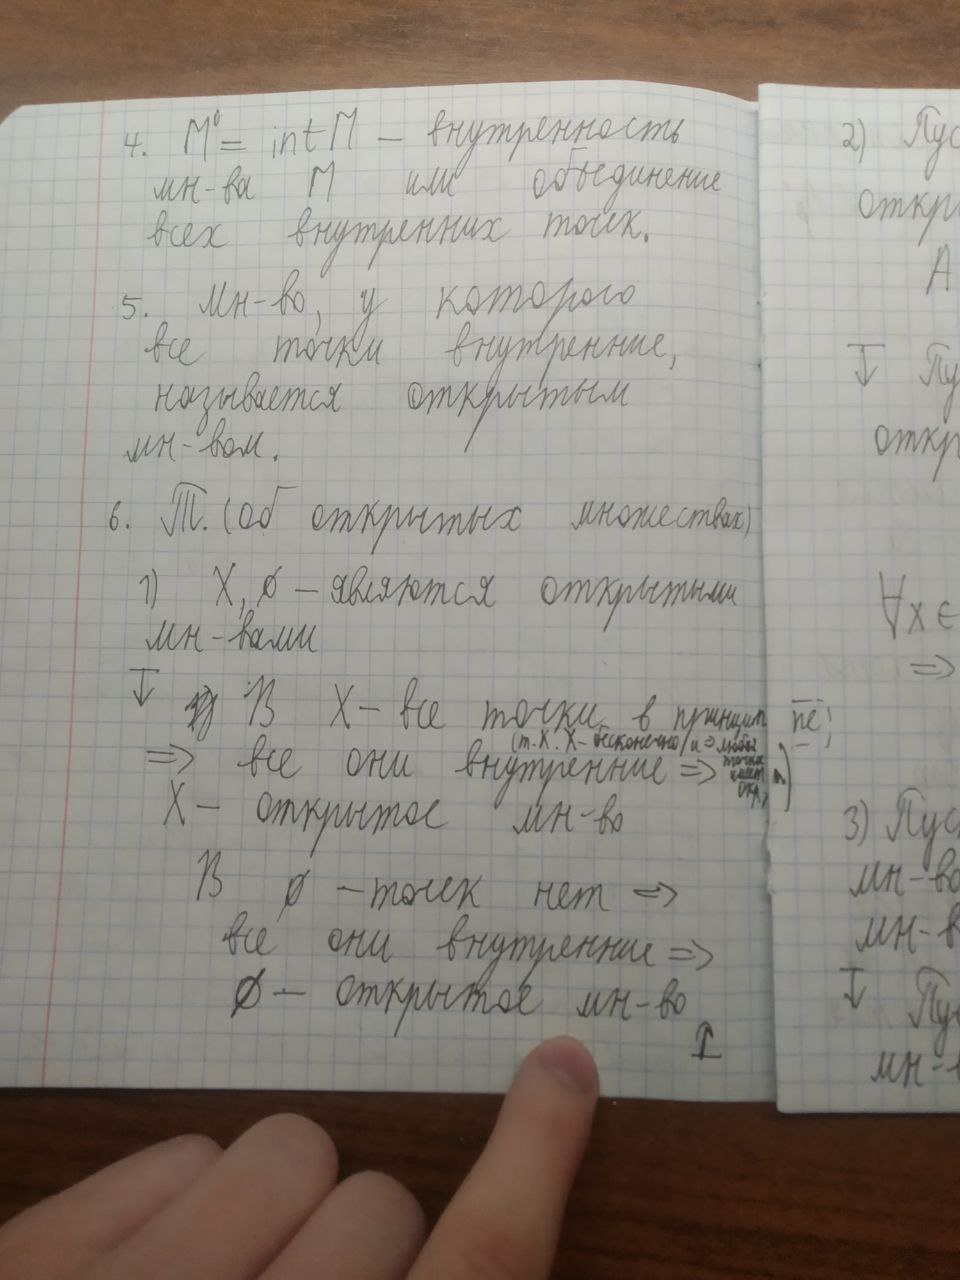 4. M⁰ = int M – внутренность
мн-ва M или объединение
всех внутренних точек.
5. Мн-во, у которого
все точки внутренние,
называется открытым
мн-вом.
6. Т. (об открытых множествах)
1) X, ∅ – являются открытыми
мн-вами
В X – все точки в принципе;
(т.к. X – бесконечно и => любая
точка
имеет
окр.)
=> все они внутренние =>
X – открытое мн-во
В ∅ – точек нет =>
все они внутренние =>
∅ – открытое мн-во
2) Пус
откры
A
Пу
откр
∀x ∈
=>
3) Пус
мн-во
мн-в
Пус
мн-в